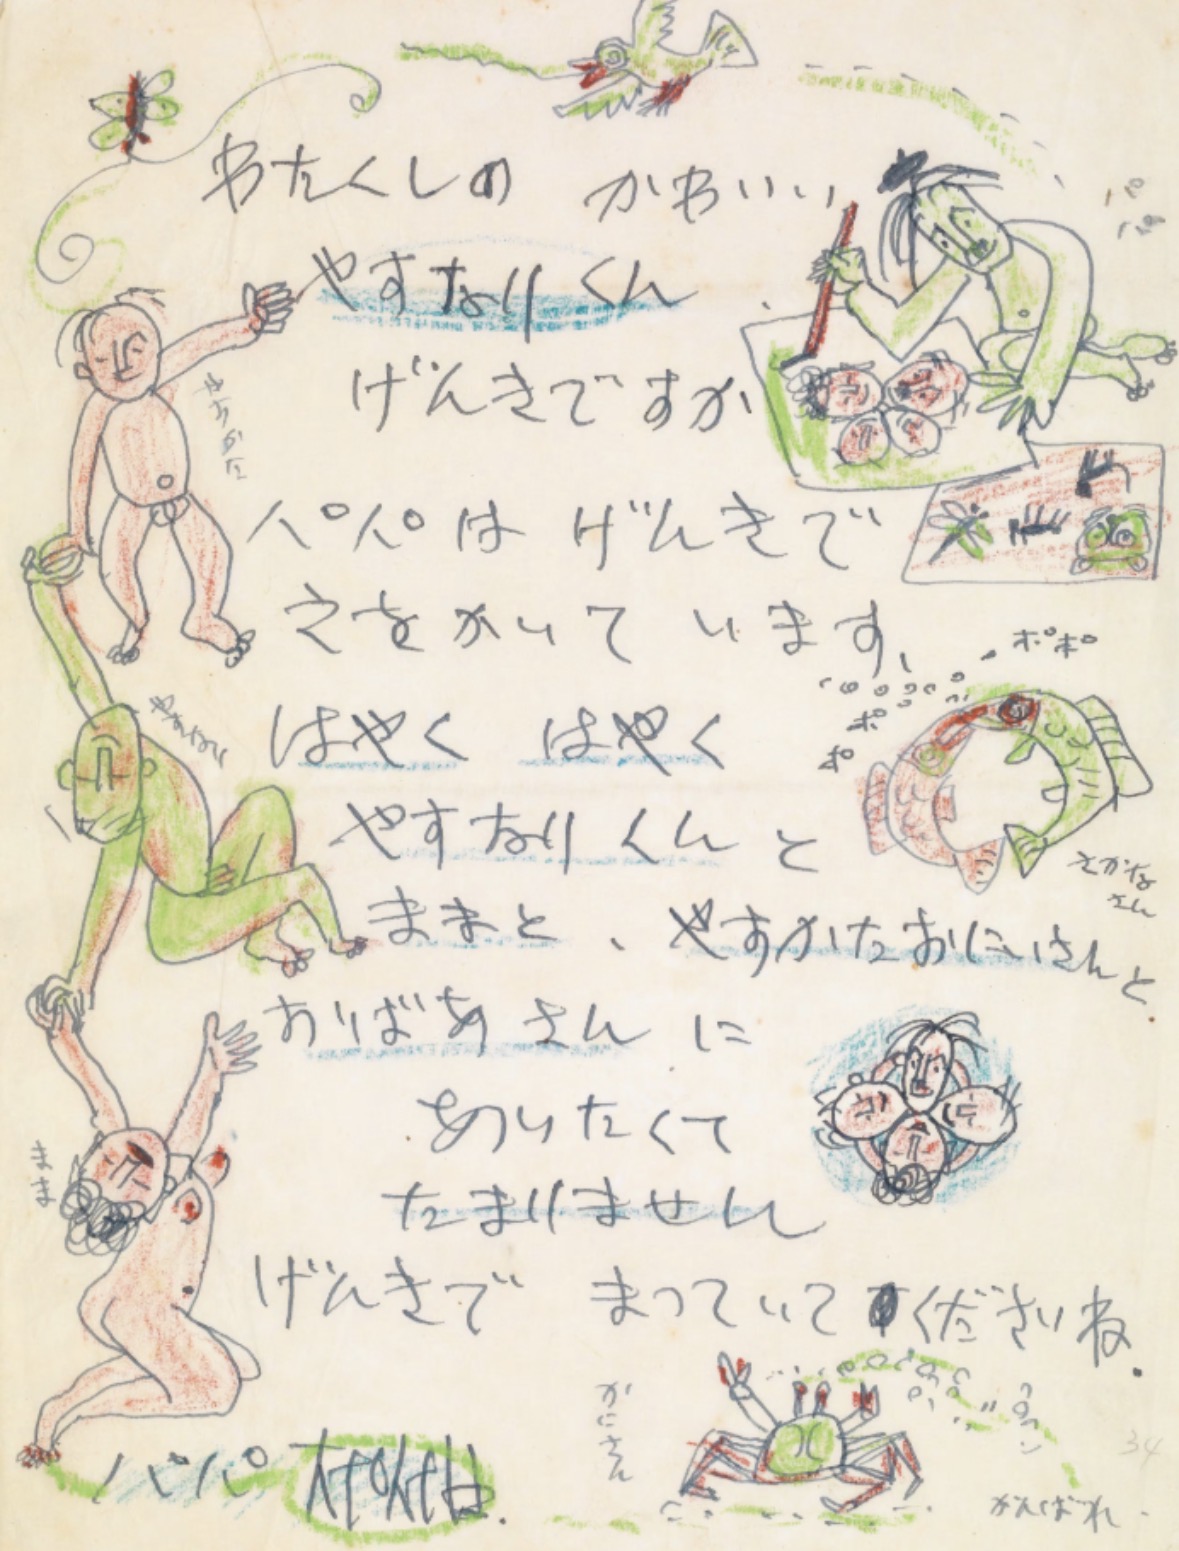 わたくしの かわいい
やすなりくん
げんきですか
パパは げんきで
えをかいて います、
はやく はやく
やすなりくんと
ままと、やすかたおにいさんと
おばあさんに
あいたくて
たまりません
げんきで まっていてくださいね.
パパ
ポポ
ポ
ポ
さかな
さん
やすかた
やすなり
まま
かにさん
がんばれ.
34